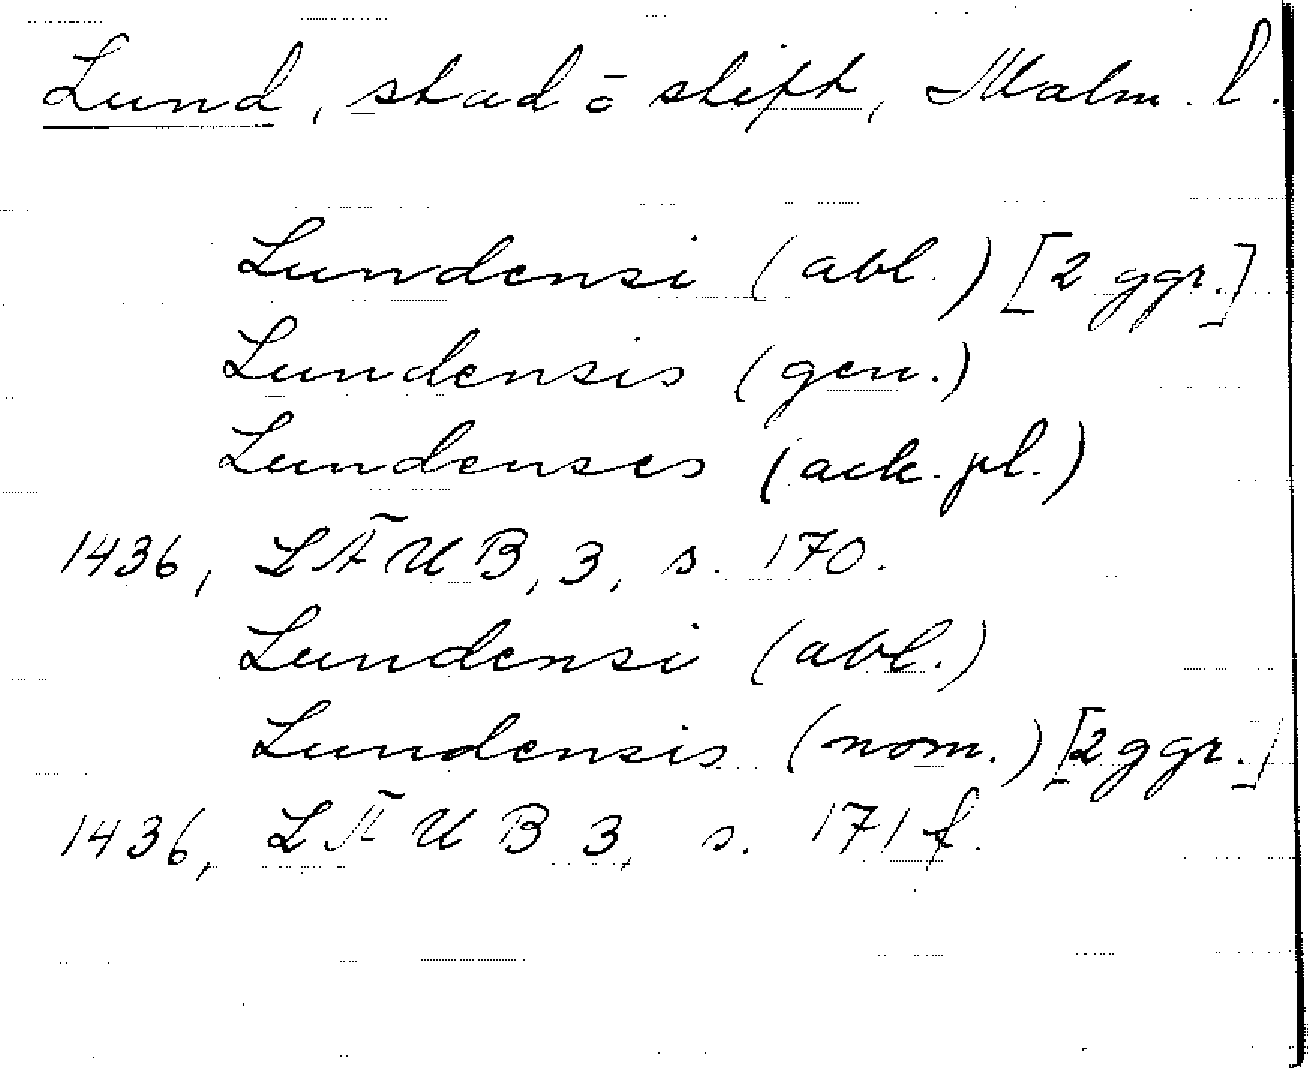 Lund, stad o stift, Malm. l.
Lundensi (abl.) [2 ggr.]
Lundensis (gen.)
Lundenses (ack. pl.)
1436, LÄUB, 3, s. 170.
Lundensi (abl.)
Lundensis (nom.) [2 ggr.]
1436, LÄUB 3, s. 171 f.